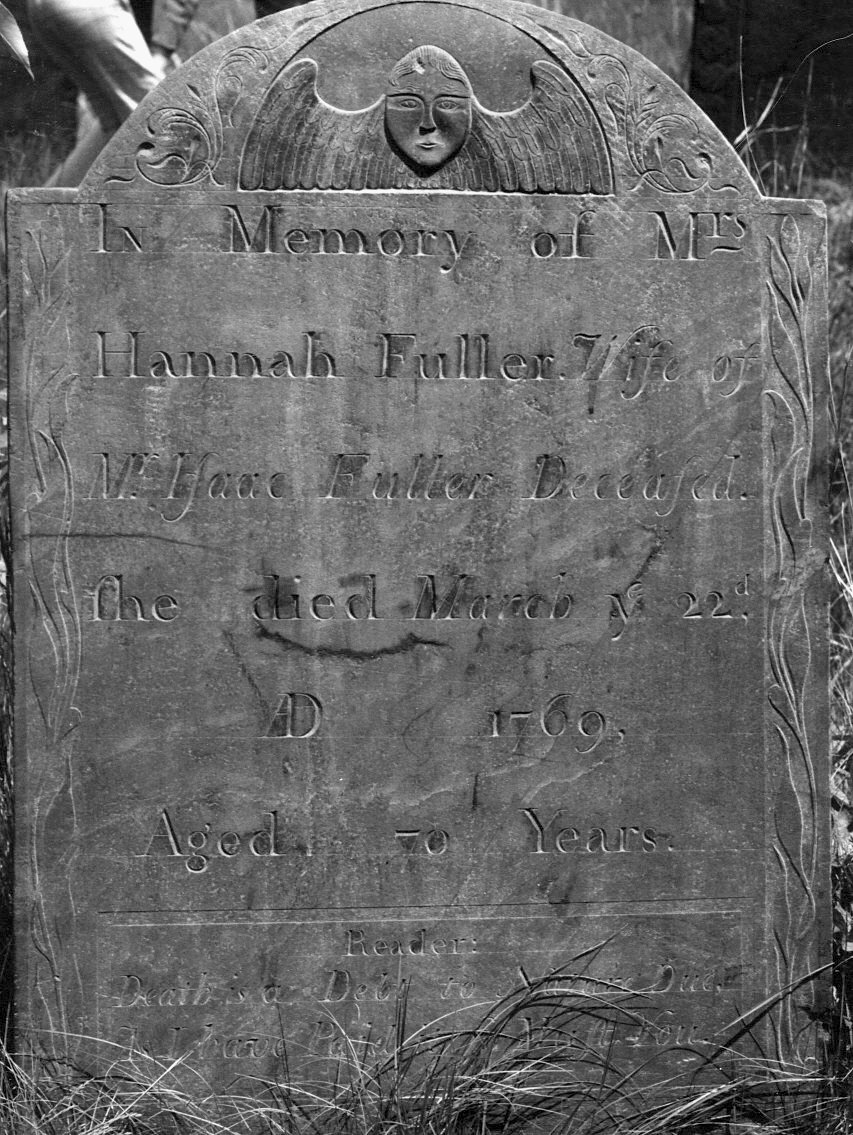 In Memory of Mrs
Hannah Fuller. Wife of
Mr. Iſaac Fuller Deceaſed.
ſhe died March ye 22d,
AD 1769,
Aged 70 Years.
Reader:
Death is a Debt to Nature Due,
As I have Paid it so Muſt You.